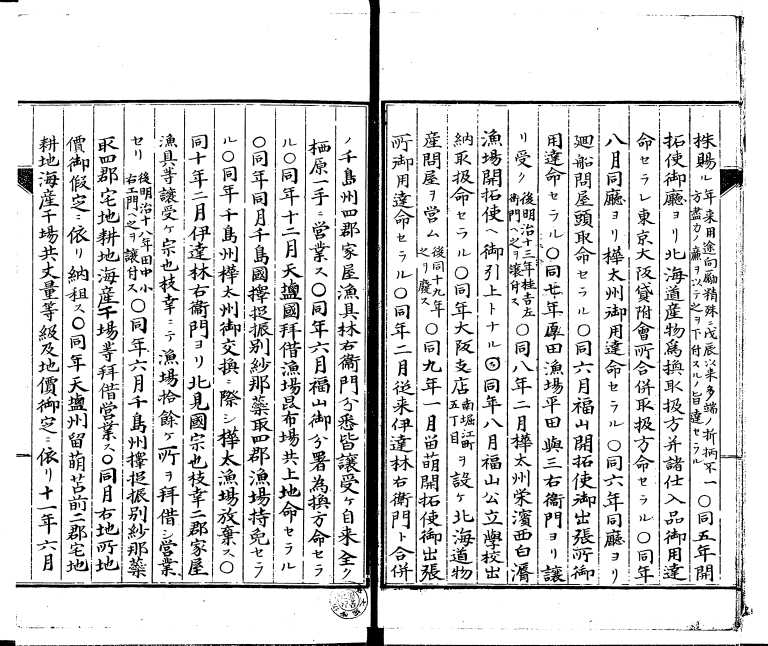 抹賜ル 年来用途向励精殊ニ戊辰以来多端ノ折柄不一
方盡力ノ廉ヲ以テ之ヲ下付スルノ旨達セラル 〇同五年開
拓使御廳ヨリ北海道産物為換取扱方并諸仕入品御用達
命セラレ東京大阪貸附會所合併取扱方命セラル〇同年
八月同廳ヨリ樺太州御用達命セラル〇同六年同廳ヨリ
廻船問屋頭取命セラル〇同六月福山開拓使御出張所御
用達命セラル〇同七年厚田漁場平田與三右衛門ヨリ讓
リ受ク 後明治十三年桂吉左
衛門ヘ之ヲ讓付ス 〇同八年二月樺太州栄濱西白漘
漁場開拓使ヘ御引上トナル〇同年八月福山公立學校出
納取扱命セラル〇同年大阪支店 南堀江町
五丁目 ヲ設ケ北海道物
産問屋ヲ営ム 後同十九年
之リ廢ス 〇同九年一月留萌開拓使御出張
所御用達命セラル〇同年二月従来伊達林右衛門ト合併
ノ千島州四郡家屋漁具林右衛門分悉皆讓受ケ自来全ク
栖原一手ニ営業ス〇同年六月福山御分署為換方命セラ
ル〇同年十二月天塩國拜借漁場昆布場共上地命セラル
〇同年同月千島國擇捉振別紗那蘂取四郡漁場持免セラ
ル〇同年千島州樺太州御交換ニ際シ樺太漁場放棄ス〇
同十年二月伊達林右衛門ヨリ北見國宗也枝幸二郡家屋
漁具等讓受ケ宗也枝幸ニテ漁場拾餘ケ所ヲ拜借シ営業
セリ 後明治十八年田中小
右エ門ヘ之ヲ讓付ス 〇同年六月千島州擇捉振別紗那蘂
取四郡宅地耕地海産干場等拜借営業ス〇同月右地所地
價御假定ニ依リ納租ス〇同年天塩州留萌苫前二郡宅地
耕地海産干場共丈量等級及地價御定ニ依リ十一年六月